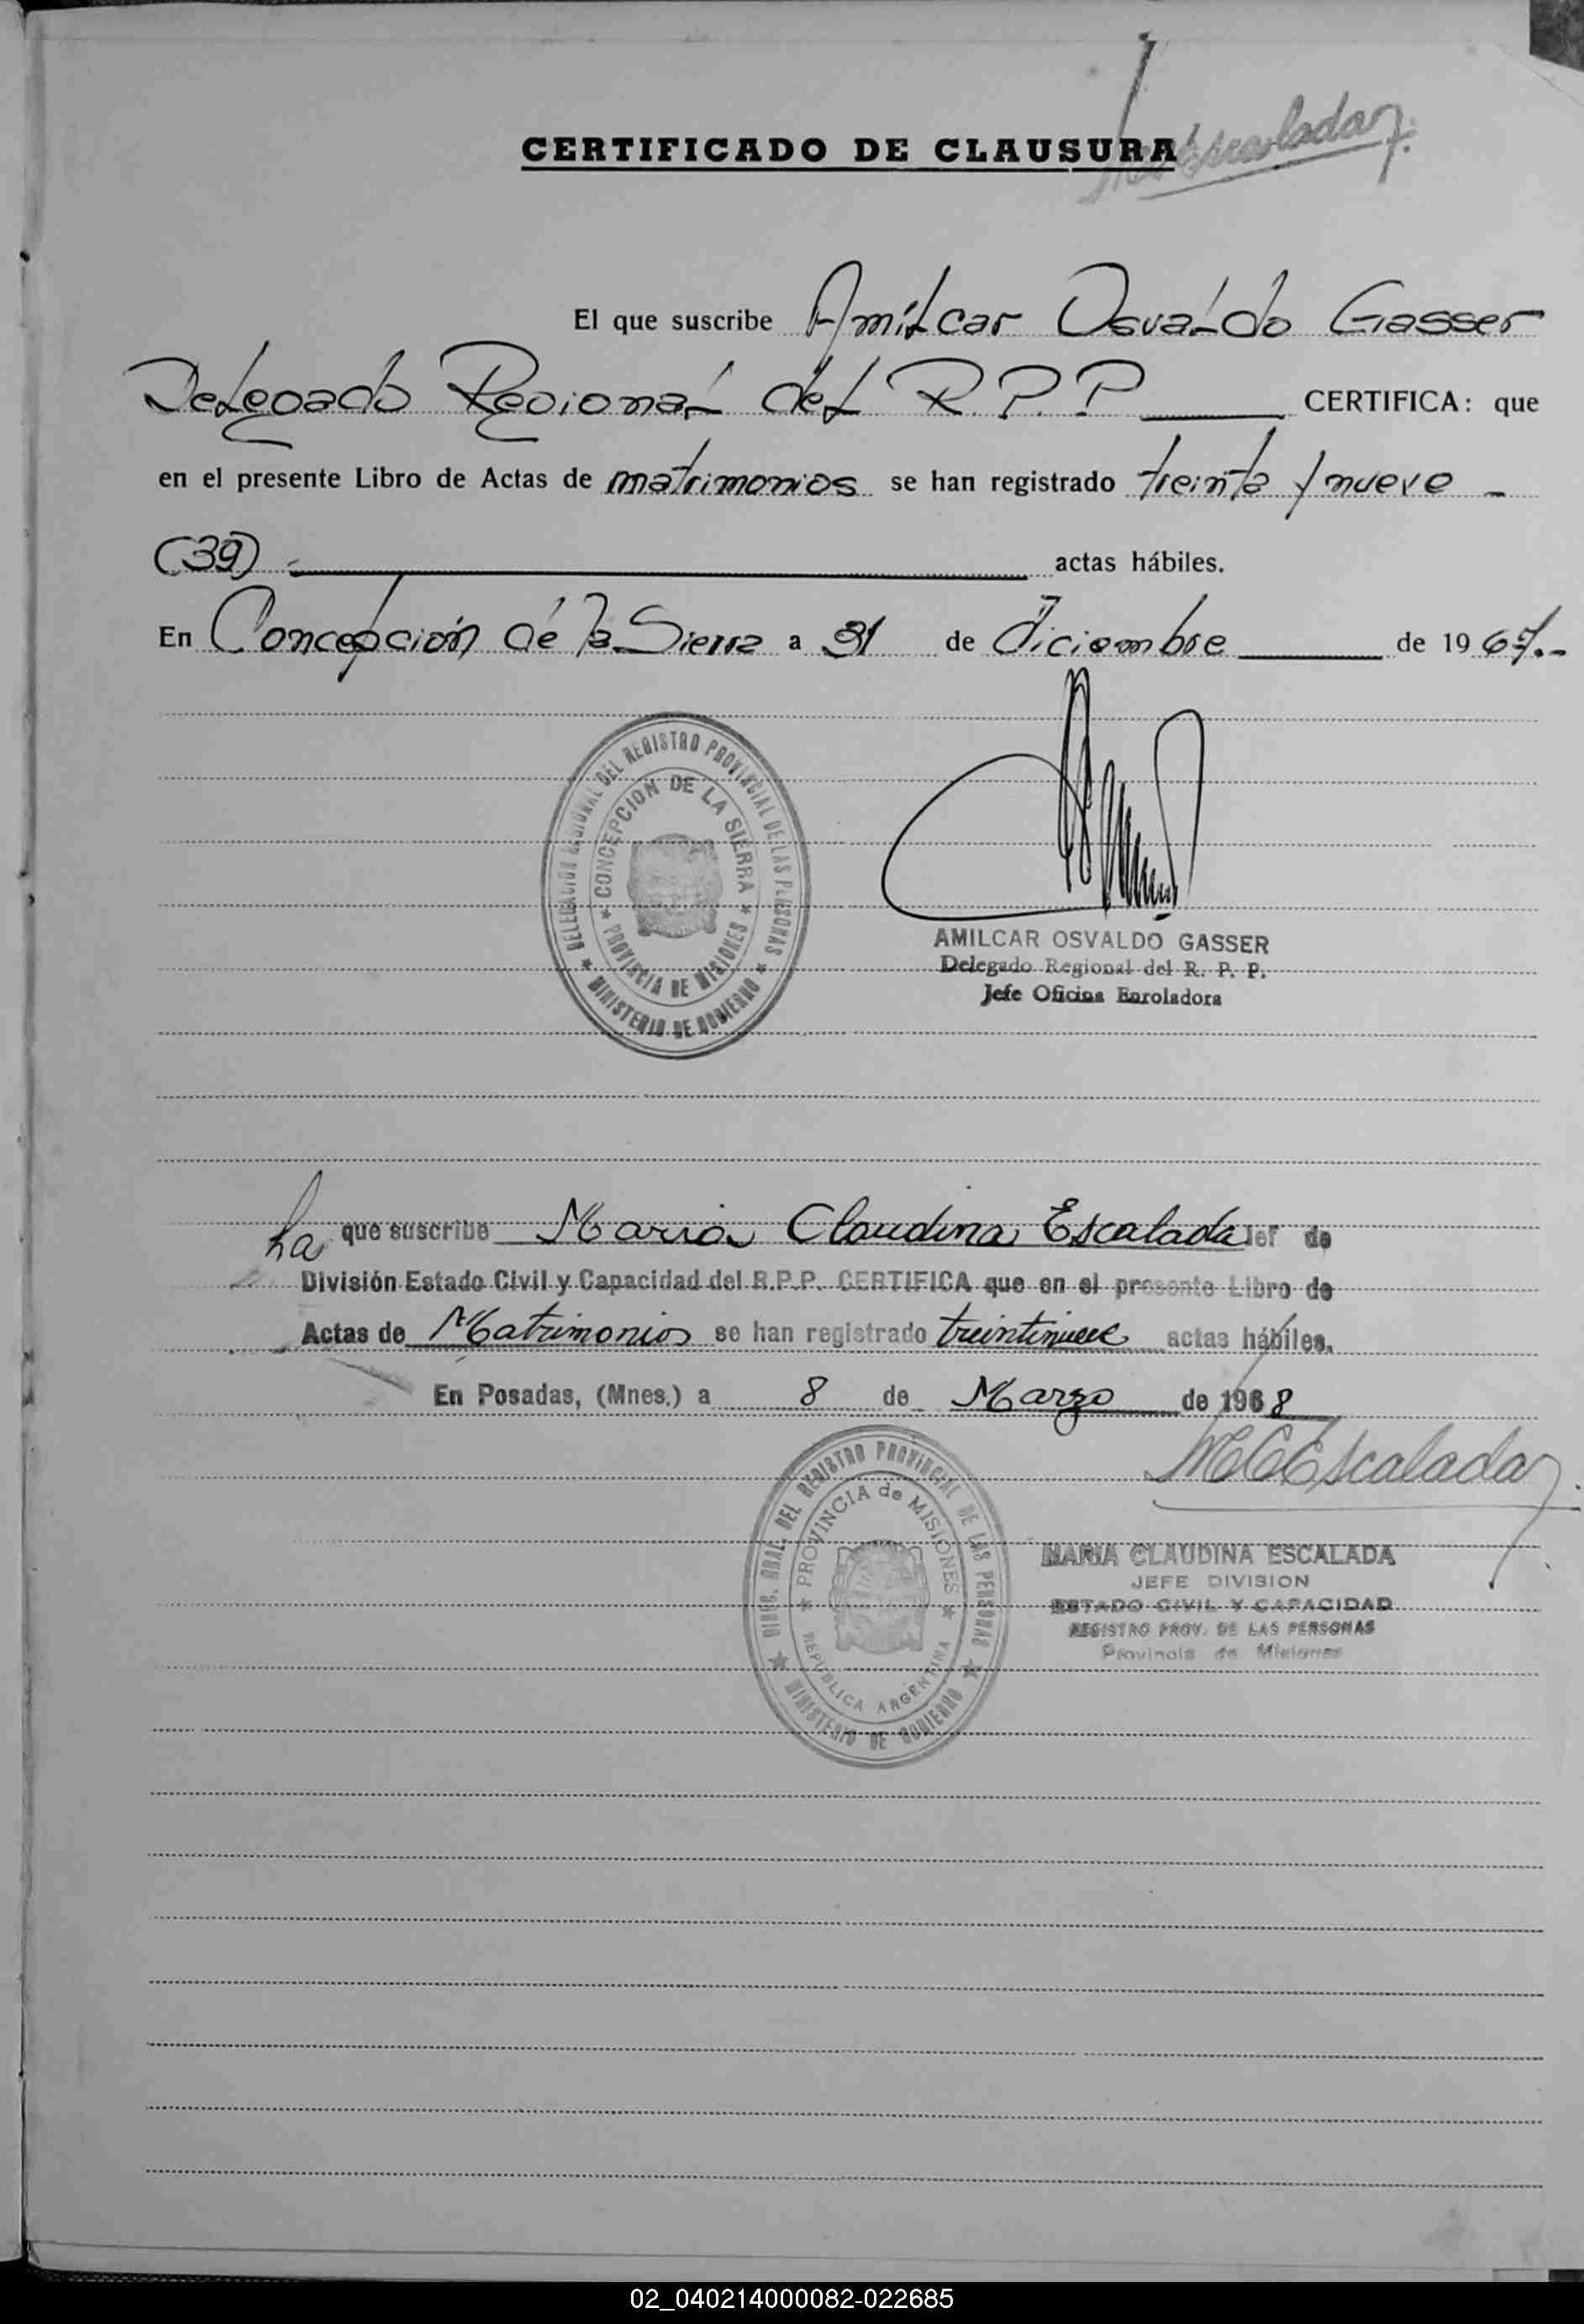 CERTIFICADO DE CLAUSURA
Escalada
El que suscribe Amílcar Osvaldo Gasser
Delegado Regional del R.P.P. CERTIFICA: que
en el presente Libro de Actas de matrimonios se han registrado treinta y nueve -
(39) actas hábiles.
En Concepción de la Sierra a 31 de diciembre de 1967.-
DELEGACION REGIONAL DEL REGISTRO PROVINCIAL DE LAS PERSONAS
CONCEPCION DE LA SIERRA
PROVINCIA DE MISIONES
MINISTERIO DE GOBIERNO
AMILCAR OSVALDO GASSER
Delegado Regional del R. P. P.
Jefe Oficina Enroladora
La que suscribe Maria Claudina Escalada Jef de
División Estado Civil y Capacidad del R.P.P. CERTIFICA que en el presente Libro de
Actas de Matrimonios se han registrado treintinueve actas hábiles.
En Posadas, (Mnes.) a 8 de Marzo de 1968
MCEscalada
DIREC. GRAL. DEL REGISTRO PROVINCIAL DE LAS PERSONAS
PROVINCIA de MISIONES
REPUBLICA ARGENTINA
MINISTERIO DE GOBIERNO
MARIA CLAUDINA ESCALADA
JEFE DIVISION
ESTADO CIVIL Y CAPACIDAD
REGISTRO PROV. DE LAS PERSONAS
Provincia de Misiones
02_040214000082-022685